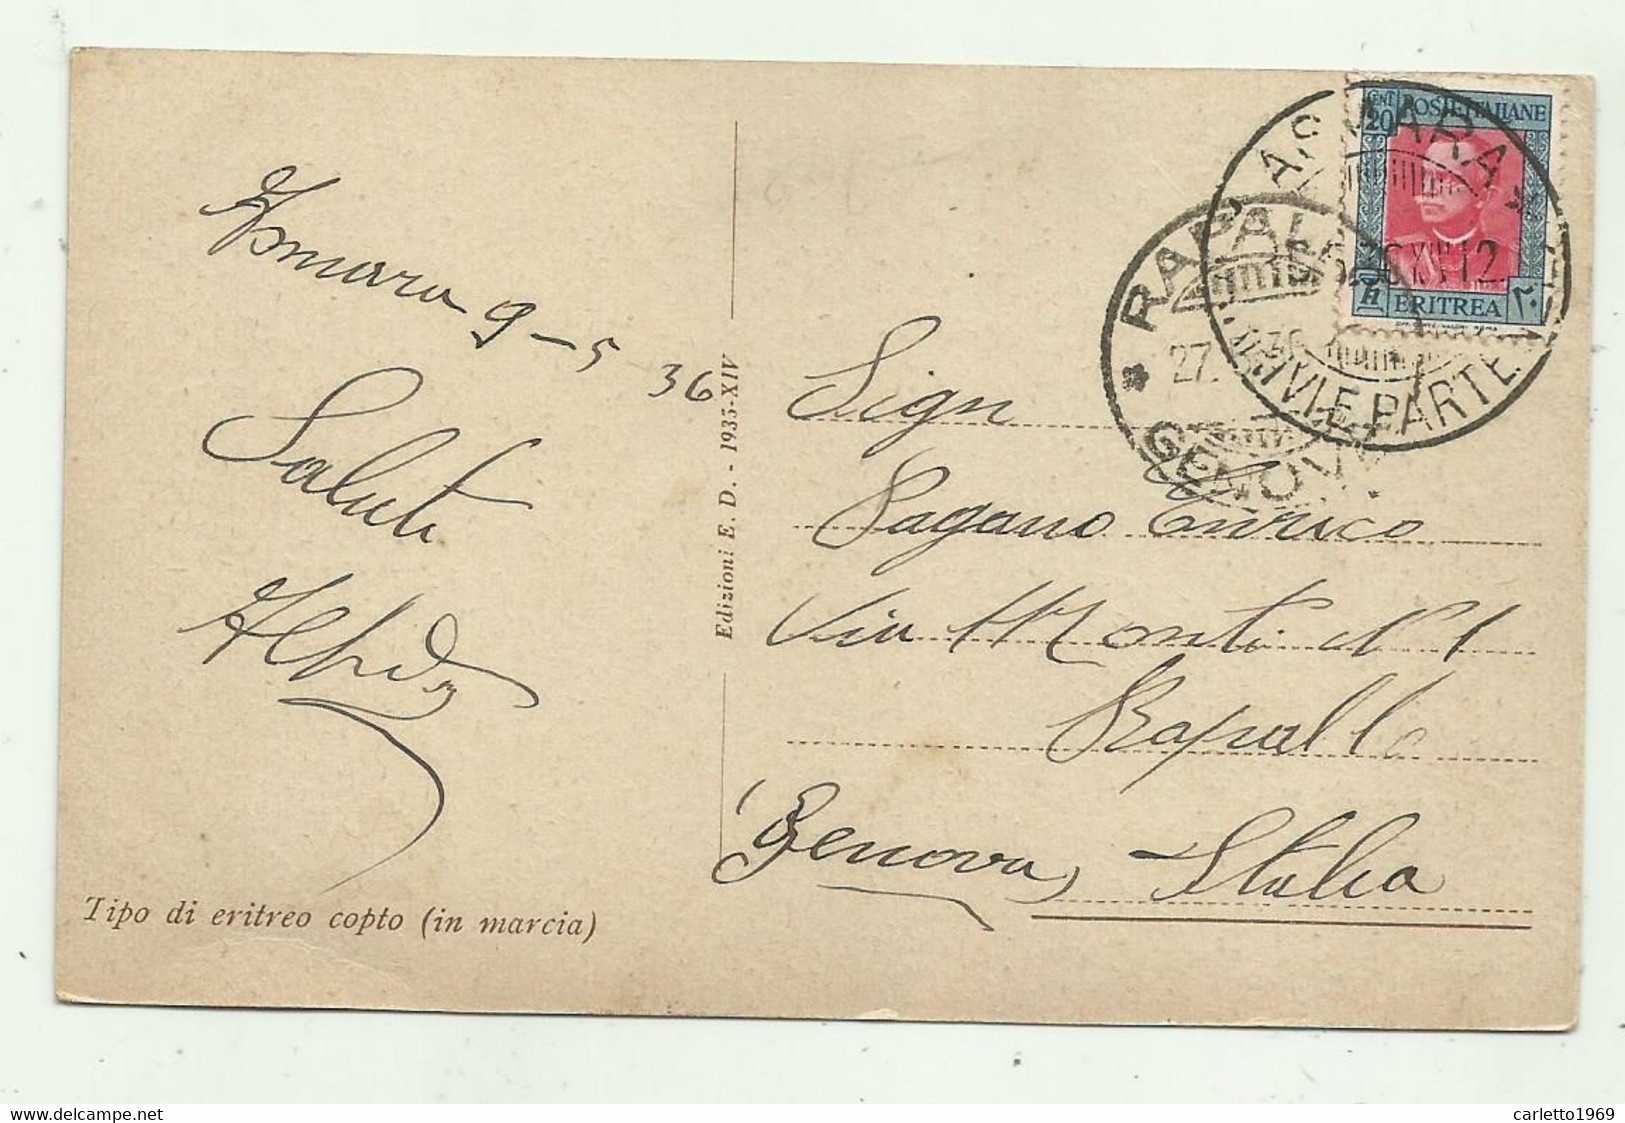 Asmara 9-5 36
Saluti
CENT 20 POSTE ITALIANE
ERITREA
ASMARA
ARRIVI E PARTENZE
RAPALLO
27.
GENOVA
Sign
Pagano Enrico
Via Monti N° 1
Rapallo
(Genova) Italia
Edizioni E. D. - 1935-XIV
Tipo di eritreo copto (in marcia)
delcampe.net
carletto1969